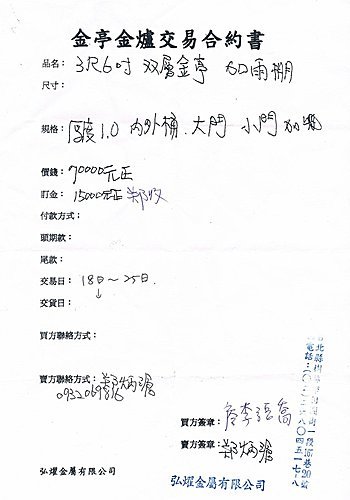 金亭金爐交易合約書
品名：3尺6吋 双層金亭 加雨棚
尺寸：
規格：厚度1.0 內外桶.大門 小門 加
價錢：70000元正
訂金：15000元正 鄭收
付款方式：
頭期款：
尾款：
交易日：18日～25日.
交貨日：↓
買方聯絡方式：
賣方聯絡方式：鄭炳
買方簽章：李
賣方簽章：鄭炳
弘燿金屬有限公司
弘燿金屬有限公司